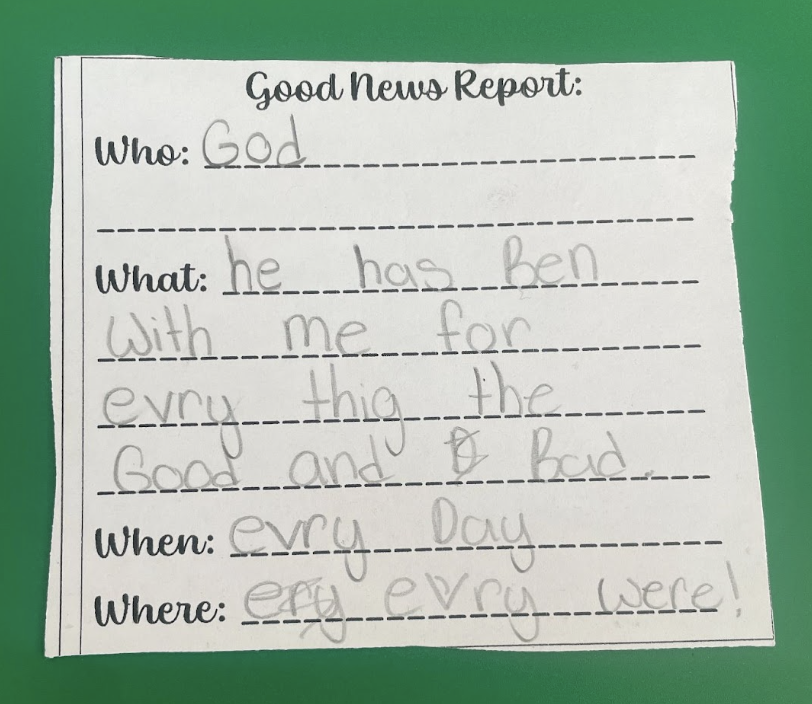 Good News Report:
Who: God
What: he has Ben
With me for
evry thig the
Good and Bad.
When: evry Day
Where: evry were!